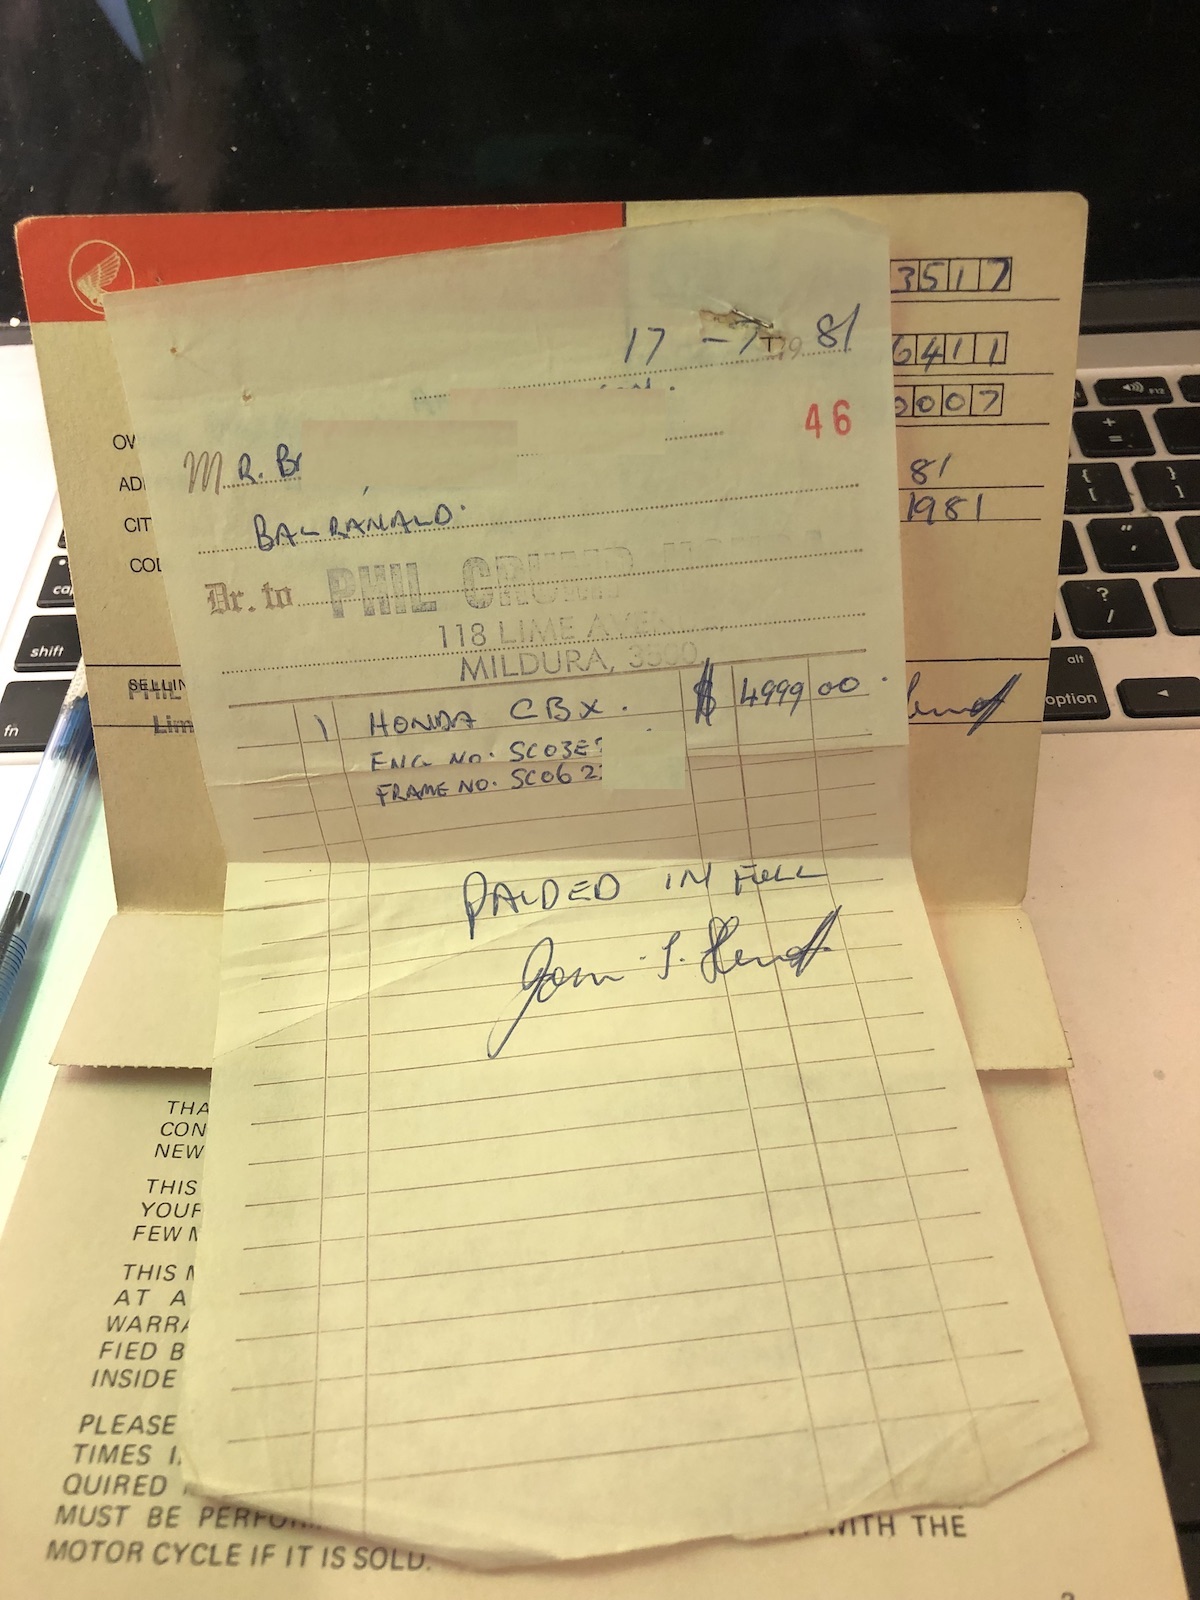 17 - 7 19 81
46
M R. Br
BALRANALD.
Dr. to PHIL CRUMP HONDA
118 LIME AVENUE,
MILDURA, 3500
1 HONDA CBX. $ 4999 00.
ENG NO. SC03E
FRAME NO. SC06 2
PAIDED IN FULL
3517
6411
0007
81
1981
OW
AD
CIT
COD
SELLIN
PHIL
Lim
THA
CON
NEW
THIS
YOUR
FEW M
THIS M
AT A
WARRA
FIED B
INSIDE
PLEASE
TIMES I
QUIRED
MUST BE PERFORM WITH THE
MOTOR CYCLE IF IT IS SOLD.
shift
fn
alt
option
F12
+
=
{
[
}
]
"
'
?
/